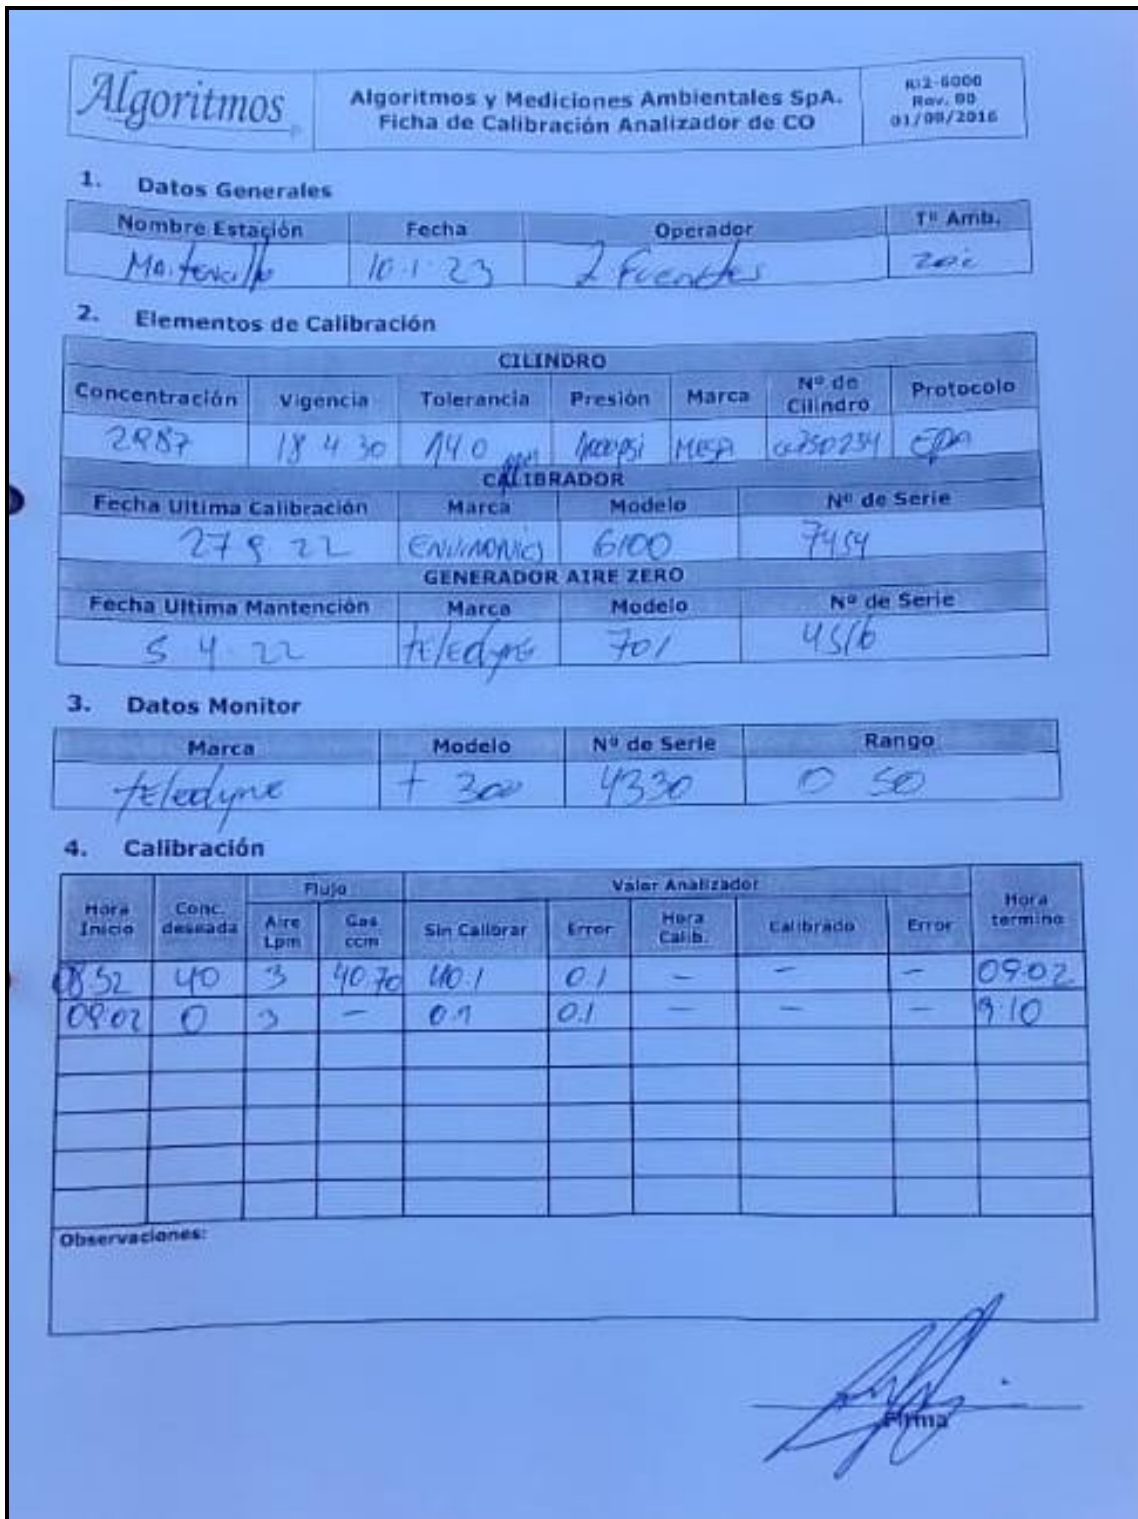 Algoritmos
Algoritmos y Mediciones Ambientales SpA.
Ficha de Calibración Analizador de CO
R12-6000
Rev. 00
01/09/2016
1. Datos Generales
Nombre Estación Fecha Operador Tº Amb.
Maitencillo 10.1.23 L Fuentes
2. Elementos de Calibración
CILINDRO
Concentración Vigencia Tolerancia Presión Marca Nº de Cilindro Protocolo
2987 18 4 30 140 ppm psi MESA cc750254 EPA
CALIBRADOR
Fecha Ultima Calibración Marca Modelo Nº de Serie
27 9 22 ENVIRONICS 6100 7454
GENERADOR AIRE ZERO
Fecha Ultima Mantención Marca Modelo Nº de Serie
5 4. 22 teledyne 701 4516
3. Datos Monitor
Marca Modelo Nº de Serie Rango
teledyne t 300 4330 0 50
4. Calibración
Flujo Valor Analizador
Hora Inicio Conc. deseada Aire Lpm Gas ccm Sin Calibrar Error Hora Calib. Calibrado Error Hora termino
08 52 40 3 40.70 40.1 0.1 - - - 09.02
09.02 0 3 - 0.1 0.1 - - - 9.10
Observaciones:
Firma